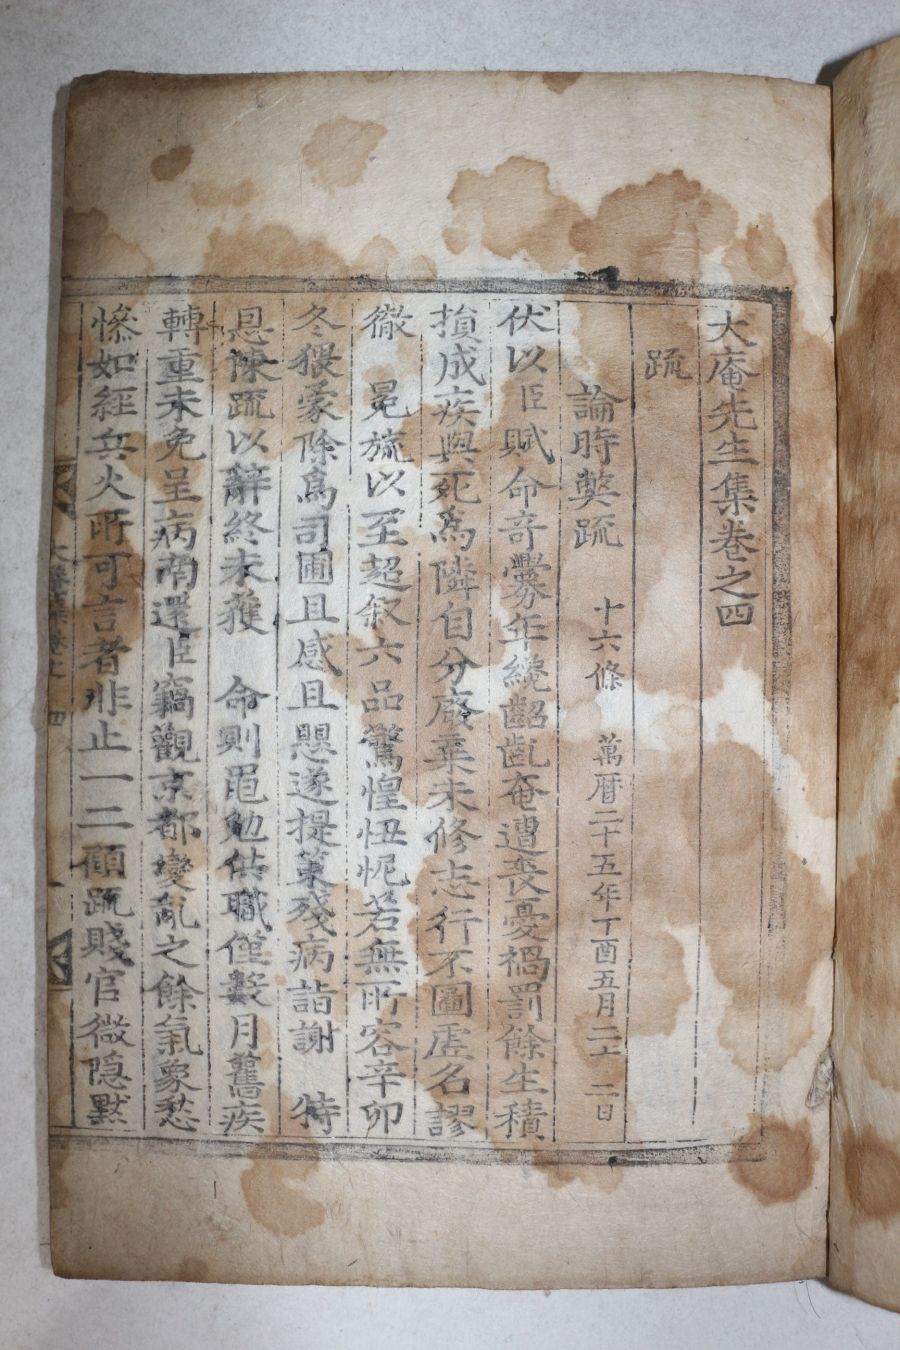 大庵先生集卷之四
疏
論時獘疏 十六條 萬曆二十五年丁酉五月二 二日
伏以臣賦命奇釁年纔齠齔奄遭喪憂禍罰餘生積
損成疾與死爲隣自分廢棄未修志行不圖虛名謬
徹 冕旒以至超叙六品驚惶忸怩若無所容辛卯
冬猥蒙除爲司圃且感且懼遂提策殘病詣謝 特
恩陳疏以辭終未獲 命則黽勉供職僅數月舊疾
轉重未免呈病而還臣竊觀京都變亂之餘氣象愁
慘如經兵火所可言者非止一二顧疏賤官微隱默